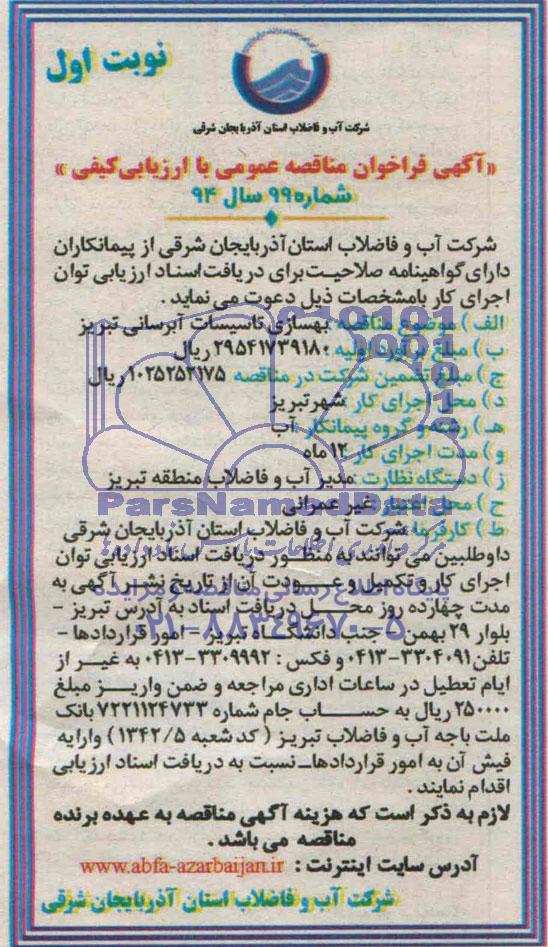 نوبت اول
شرکت آب و فاضلاب استان آذربایجان شرقی
«آگهی فراخوان مناقصه عمومی با ارزیابی کیفی»
شماره ۹۹ سال ۹۴
شرکت آب و فاضلاب استان آذربایجان شرقی از پیمانکاران
دارای گواهینامه صلاحیت برای دریافت اسناد ارزیابی توان
اجرای کار بامشخصات ذیل دعوت می نماید .
الف ) موضوع مناقصه : بهسازی تاسیسات آبرسانی تبریز
ب ) مبلغ برآورد اولیه : ۲۹۵۴۱۷۳۹۱۸۰ ریال
ج ) مبلغ تضمین شرکت در مناقصه : ۱۰۲۵۲۵۲۱۷۵ ریال
د ) محل اجرای کار : شهر تبریز
هـ ) رشته و گروه پیمانکار : آب
و ) مدت اجرای کار : ۱۲ ماه
ز ) دستگاه نظارت : مدیر آب و فاضلاب منطقه تبریز
ح ) محل اعتبار : غیر عمرانی
ط ) کارفرما : شرکت آب و فاضلاب استان آذربایجان شرقی
داوطلبین می توانند به منظور دریافت اسناد ارزیابی توان
اجرای کار و تکمیل و عودت آن از تاریخ نشر آگهی به
مدت چهارده روز محل دریافت اسناد به آدرس تبریز -
بلوار ۲۹ بهمن - جنب دانشگاه تبریز - امور قراردادها -
تلفن ۳۳۰۴۰۹۱-۰۴۱۳ و فکس : ۳۳۰۹۹۹۲-۰۴۱۳ به غیر از
ایام تعطیل در ساعات اداری مراجعه و ضمن واریز مبلغ
۲۵۰۰۰۰ ریال به حساب جام شماره ۷۲۲۱۱۲۴۷۳۳ بانک
ملت باجه آب و فاضلاب تبریز ( کد شعبه ۱۳۴۲/۵ ) وارایه
فیش آن به امور قراردادها- نسبت به دریافت اسناد ارزیابی
اقدام نمایند .
لازم به ذکر است که هزینه آگهی مناقصه به عهده برنده
مناقصه می باشد .
آدرس سایت اینترنت : www.abfa-azarbaijan.ir
شرکت آب و فاضلاب استان آذربایجان شرقی
ParsNamadData
پایگاه اطلاع رسانی مناقصه و مزایده
۰۲۱-۸۸۳۴۹۶۷۰-۵